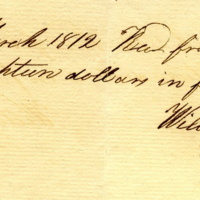 March 1812 Recd. fro
hteen dollars in f
Will